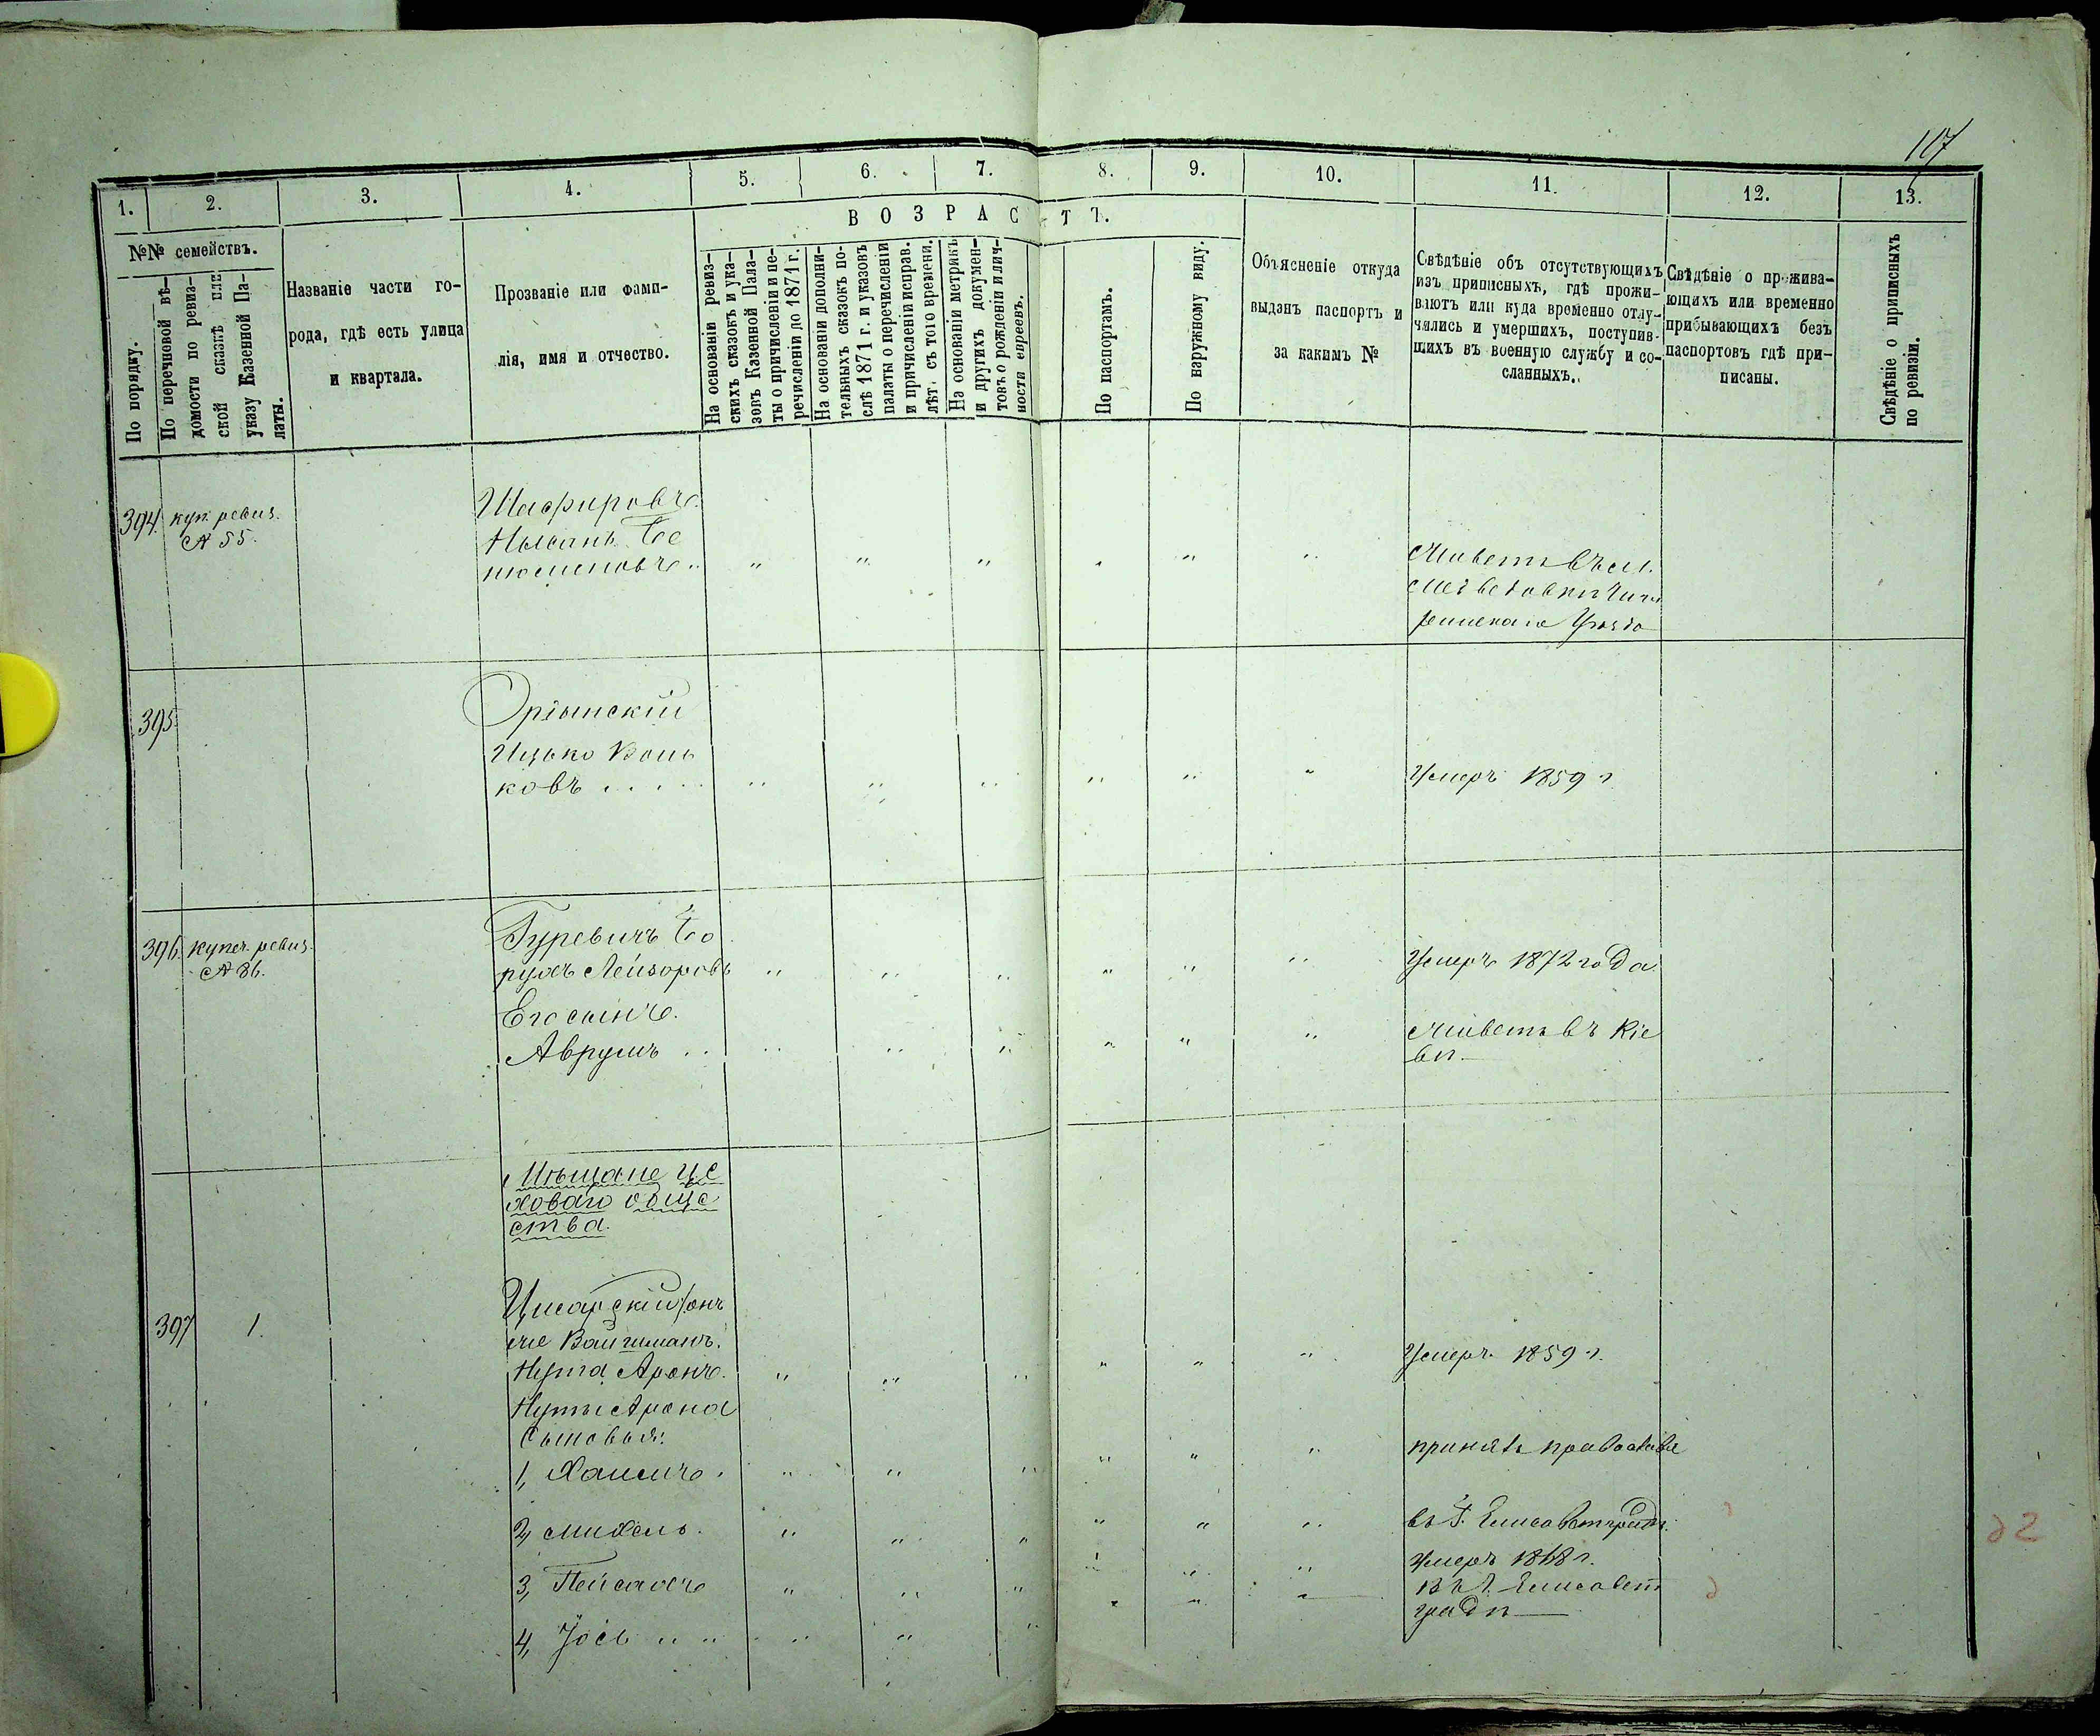 107
1. 2. 3. 4. 5. 6. 7. 8. 9. 10. 11. 12. 13.
№№ семействъ.
По порядку.
По перечновой вѣ-
домости по ревиз-
ской сказкѣ или
указу Казенной Па-
латы.
Названіе части го-
рода, гдѣ есть улица
и квартала.
Прозваніе или фами-
лія, имя и отчество.
ВОЗРАСТЪ.
На основаніи ревиз-
скихъ сказокъ и ука-
зовъ Казенной Пала-
ты о причисленіи и пе-
речисленіи до 1871 г.
На основаніи дополни-
тельныхъ сказокъ по-
слѣ 1871 г. и указовъ
палаты о перечисленіи
и причисленіи исправ.
лѣт. съ того времени.
На основаніи метрикъ
и другихъ докумен-
товъ о рожденіи и лич-
ности евреевъ.
По паспортамъ.
По наружному виду.
Объясненіе откуда
выданъ паспортъ и
за какимъ №
Свѣдѣніе объ отсутствующихъ
изъ приписныхъ, гдѣ прожи-
ваютъ или куда временно отлу-
чились и умершихъ, поступив-
шихъ въ военную службу и со-
сланныхъ.
Свѣдѣніе о прожива-
ющихъ или временно
прибывающихъ безъ
паспортовъ гдѣ при-
писаны.
Свѣдѣніе о приписныхъ
по ревизіи.
394. куп. ревиз.
№ 55.
Шафировъ
Нысанъ
Живетъ въ м.
Медведовки Чиги
ринскаго Уѣзда
395.
Ицько
ковъ
Умеръ 1859 г.
396. купеч. ревиз.
№ 86.
Гуревичъ Бо
рухъ Лейзоровъ
Умеръ 1872 года
Его сынъ
Аврумъ
Живетъ въ Кіе
вѣ
Мѣщане це
ховаго обще
ства.
397 1.
онъ
же Вайнманъ.
Нута Аронъ.
Умеръ 1859 г.
Нуты Арона
Сыновья:
1, Хаимъ
принялъ православіе
2, Михель.
въ Г. Елисаветградѣ.
3, Пейсахъ
Умеръ 1868 г.
4, Іось
въ Г. Елисавет
градѣ